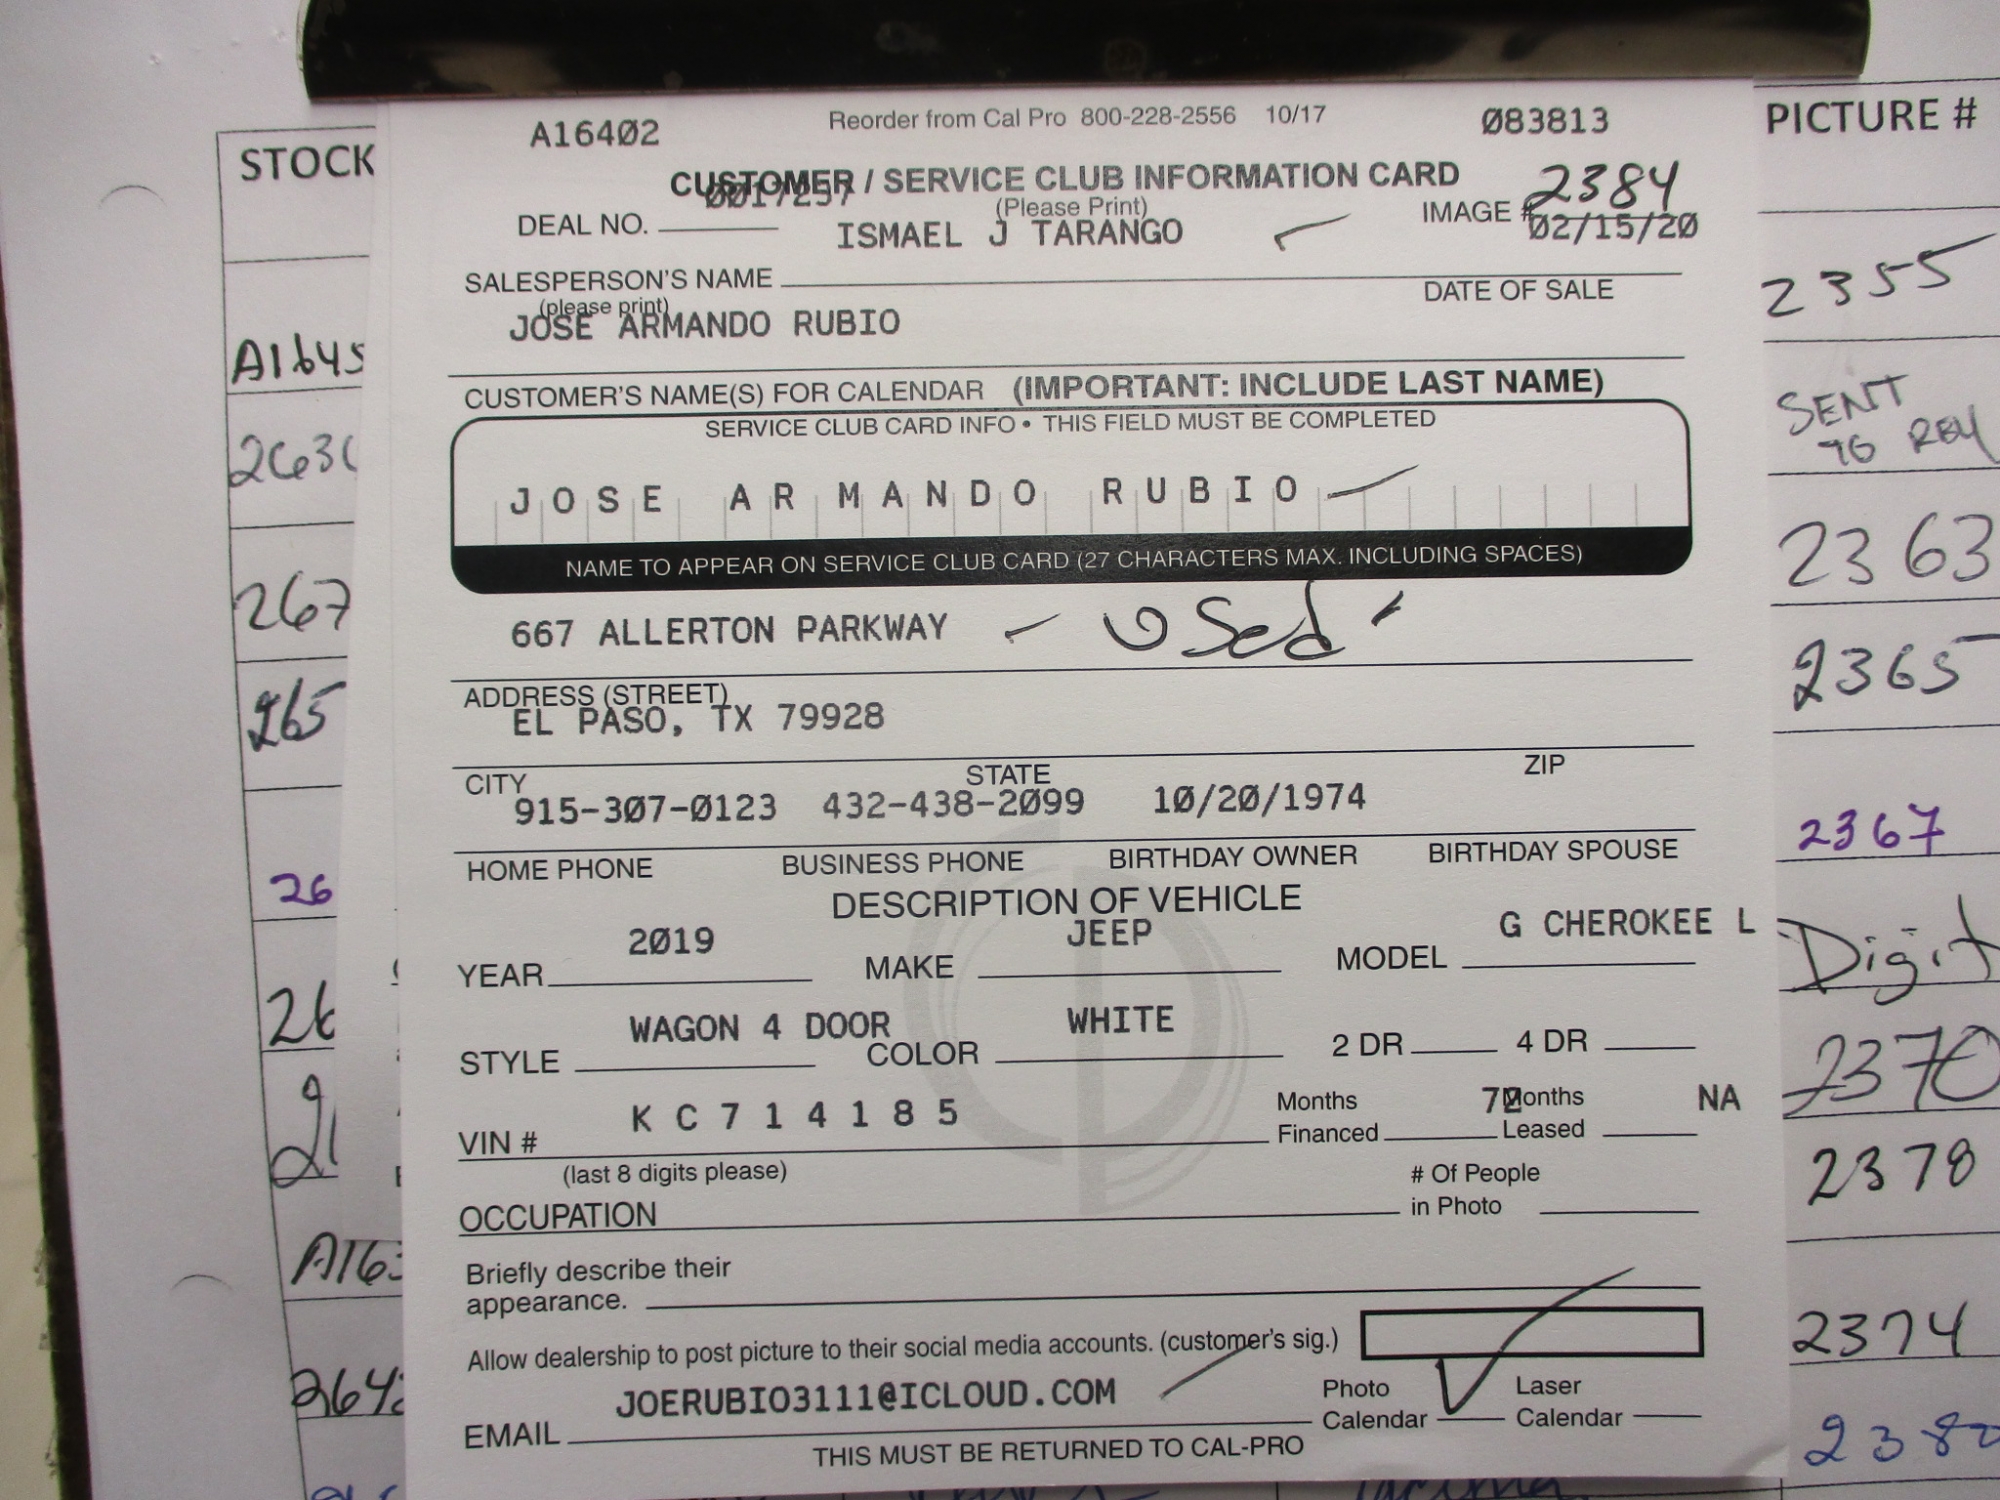 A16402 Reorder from Cal Pro 800-228-2556 10/17 083813
CUSTOMER / SERVICE CLUB INFORMATION CARD
(Please Print)
DEAL NO. 0017257 IMAGE # 2384
ISMAEL J TARANGO 02/15/20
SALESPERSON'S NAME DATE OF SALE
(please print)
JOSE ARMANDO RUBIO
CUSTOMER'S NAME(S) FOR CALENDAR (IMPORTANT: INCLUDE LAST NAME)
SERVICE CLUB CARD INFO • THIS FIELD MUST BE COMPLETED
JOSE ARMANDO RUBIO
NAME TO APPEAR ON SERVICE CLUB CARD (27 CHARACTERS MAX. INCLUDING SPACES)
667 ALLERTON PARKWAY Used
ADDRESS (STREET)
EL PASO, TX 79928
CITY STATE ZIP
915-307-0123 432-438-2099 10/20/1974
HOME PHONE BUSINESS PHONE BIRTHDAY OWNER BIRTHDAY SPOUSE
DESCRIPTION OF VEHICLE
YEAR 2019 MAKE JEEP MODEL G CHEROKEE L
STYLE WAGON 4 DOOR COLOR WHITE 2 DR 4 DR
VIN # KC714185 Months Financed 72 Months Leased NA
(last 8 digits please)
OCCUPATION # Of People in Photo
Briefly describe their
appearance.
Allow dealership to post picture to their social media accounts. (customer's sig.)
EMAIL JOERUBIO3111@ICLOUD.COM Photo Calendar Laser Calendar
THIS MUST BE RETURNED TO CAL-PRO
STOCK
A1645
2636
267
265
26
26
A163
2642
PICTURE #
2355
SENT
TO
2363
2365
2367
Digit
2370
2378
2374
2380